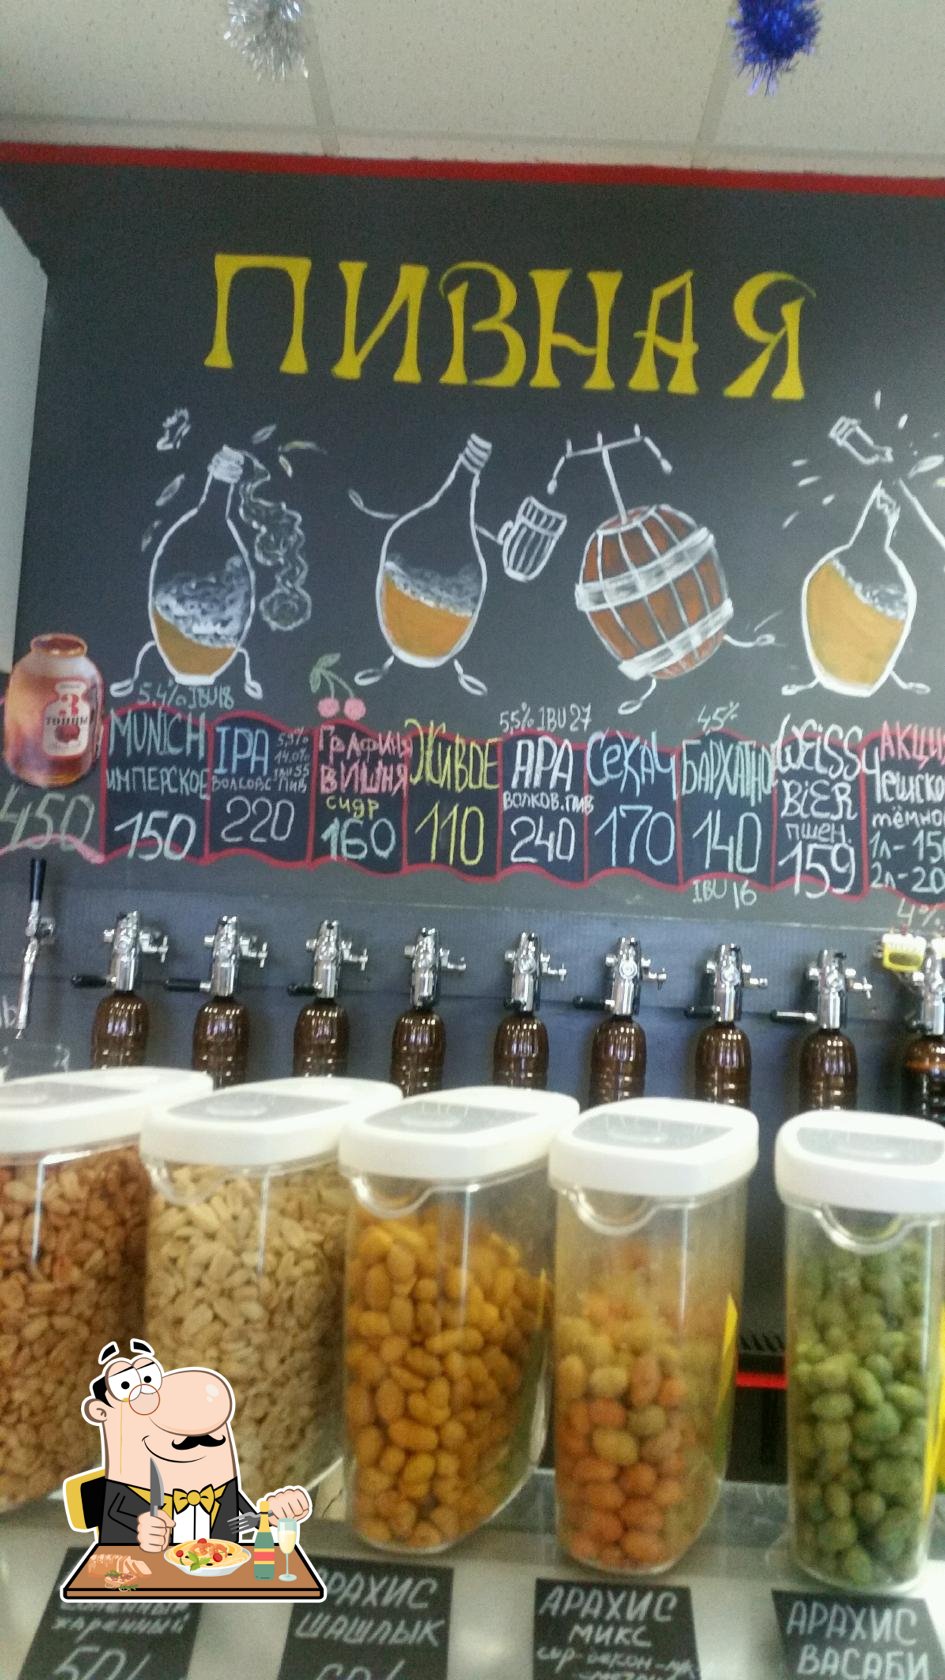 ПИВНАЯ
3
ТОННЫ
450
5,4% IBU18
MUNICH
ИМПЕРСКОЕ
150
IPA
5,9%
14,0%
IBU 55
ВОЛКОВС. ПИВ
220
ГРАФИНЯ
ВИШНЯ
СИДР
160
ЖИВОЕ
110
5,5% IBU 27
APA
ВОЛКОВ.ПИВ
240
СЕКАЧ
170
4,5%
БАРХАТНО
140
IBU 16
WEISS
BiER
ПШЕН.
159
АКЦИЯ
Чешско
тёмно
1л-150
2л-20
4%
жаренный
50/
АРАХИС
ШАШЛЫК
АРАХИС
МИКС
АРАХИС
ВАСАБИ